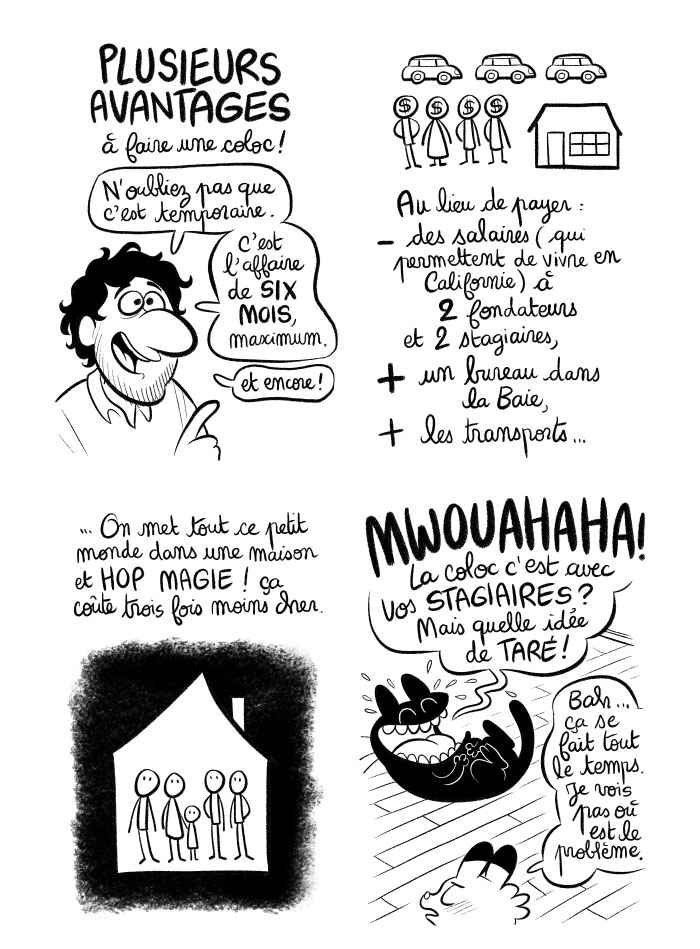 PLUSIEURS
AVANTAGES
à faire une coloc !
N'oubliez pas que
c'est temporaire.
C'est
l'affaire
de SIX
MOIS,
maximum.
et encore !
$ $ $ $
Au lieu de payer :
- des salaires ( qui
permettent de vivre en
Californie ) à
2 fondateurs
et 2 stagiaires,
+ un bureau dans
la Baie,
+ les transports...
... On met tout ce petit
monde dans une maison
et HOP MAGIE ! ça
coûte trois fois moins cher.
MWOUAHAHA!
La coloc c'est avec
vos STAGIAIRES ?
Mais quelle idée
de TARÉ !
Bah...
ça se
fait tout
le temps.
Je vois
pas où
est le
problème.